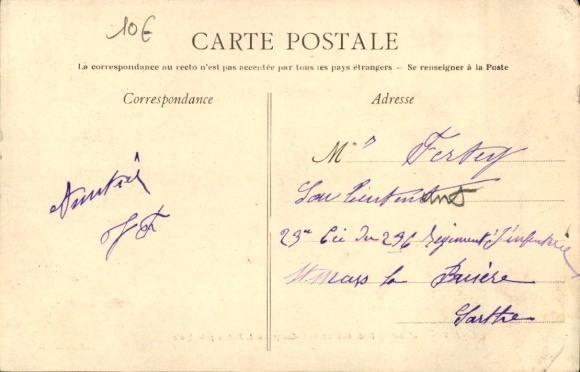 10€
CARTE POSTALE
La correspondance au recto n'est pas acceptée par tous les pays étrangers – Se renseigner à la Poste
Correspondance
Adresse
Amitié
M
Sous lieutenant
23me Cie du 296 Régiment d'infanterie
St Mars la Brière
Sarthe